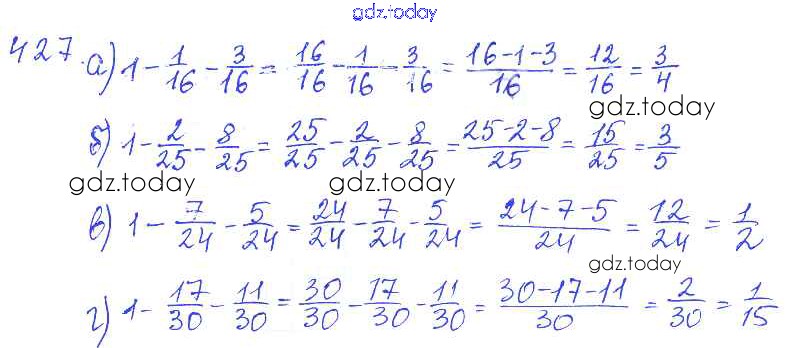 gdz.today
427. а) 1 - 1/16 - 3/16 = 16/16 - 1/16 - 3/16 = (16-1-3)/16 = 12/16 = 3/4
gdz.today
б) 1 - 2/25 - 8/25 = 25/25 - 2/25 - 8/25 = (25-2-8)/25 = 15/25 = 3/5
gdz.today gdz.today
в) 1 - 7/24 - 5/24 = 24/24 - 7/24 - 5/24 = (24-7-5)/24 = 12/24 = 1/2
gdz.today
г) 1 - 17/30 - 11/30 = 30/30 - 17/30 - 11/30 = (30-17-11)/30 = 2/30 = 1/15